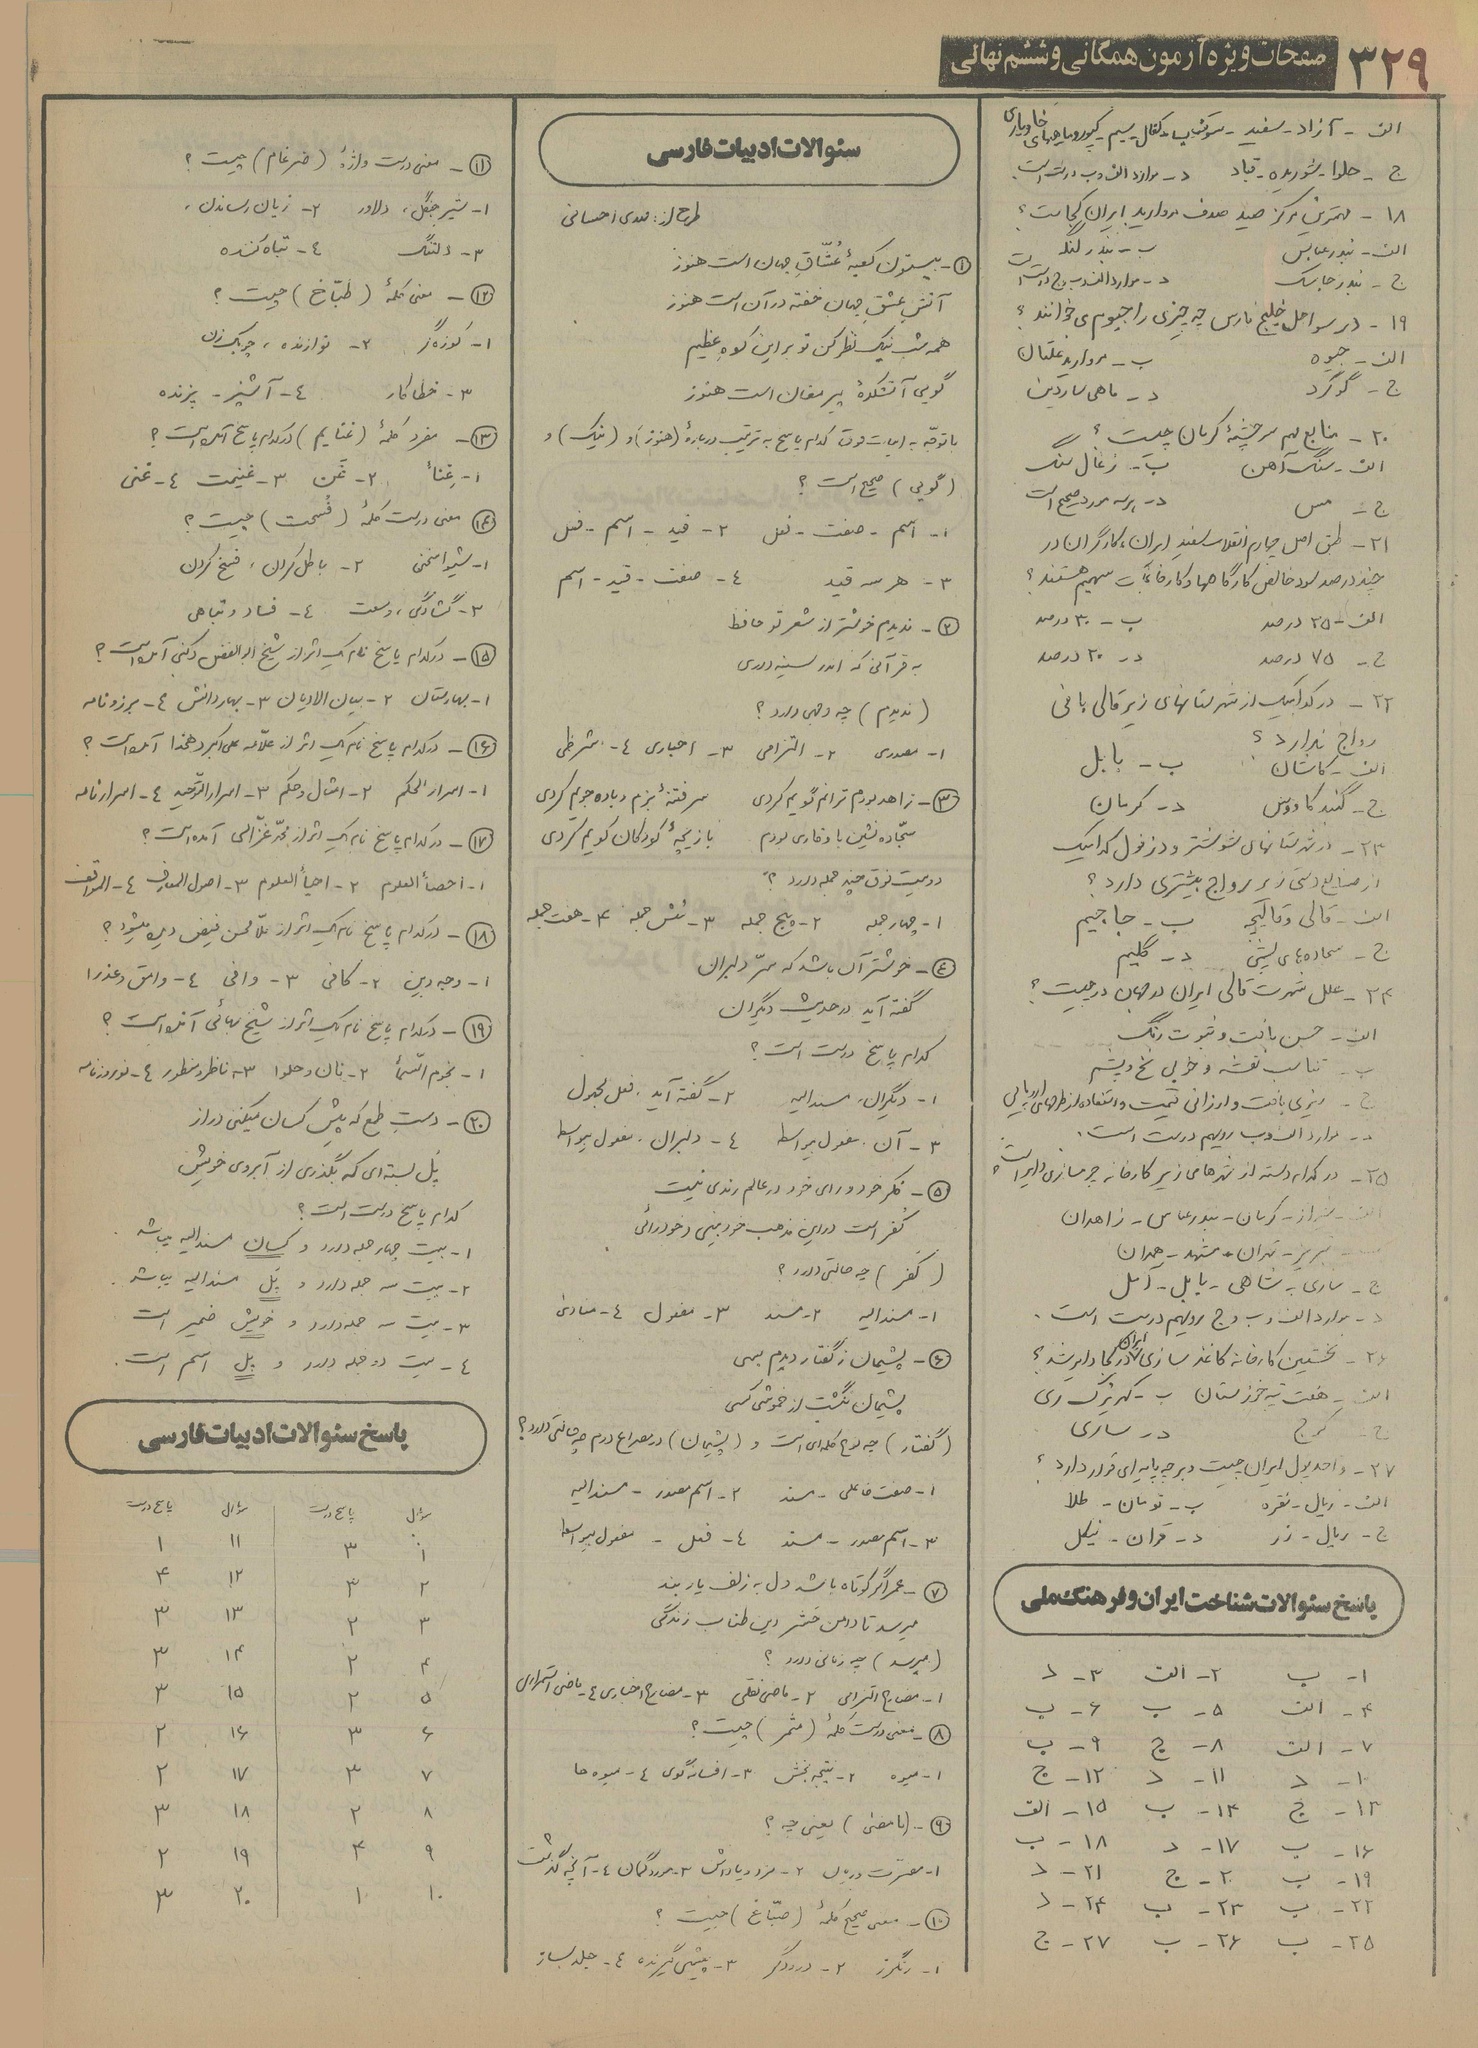 ۳۲۹
صفحات ویژه آزمون همگانی و ششم نهائی
الف - آزاد - سفید -
ج - حلوا - شوریده - قباد د - موارد الف و ب درست است
۱۸ - مهمترین مرکز صید صدف مروارید ایران کجاست؟
الف - بندرعباس ب - بندر لنگه
ج - بندر جاسک د - موارد الف و ب و ج درست است
۱۹ - در سواحل خلیج فارس چه چیزی را جیوم می خوانند؟
الف - جیوه ب - مروارید غلتان
ج - گوگرد د - ماهی ساردین
۲۰ - منابع مهم سرچشمهٔ کرمان چیست؟
الف - سنگ آهن ب - زغال سنگ
ج - مس د - هر سه مورد صحیح است
۲۱ - طبق اصل چهارم انقلاب سفید ایران، کارگران در
چند درصد سود خالص کارگاهها و کارخانجات سهیم هستند؟
الف - ۲۵ درصد ب - ۳۰ درصد
ج - ۷۵ درصد د - ۲۰ درصد
۲۲ - در کدامیک از شهرستانهای زیر قالی بافی
رواج ندارد؟
الف - کاشان ب - بابل
ج - گنبد کاووس د - کرمان
۲۳ - در شهرستانهای شوشتر و دزفول کدامیک
از صنایع دستی زیر رواج بیشتری دارد؟
الف - قالی و قالیچه ب - جاجیم
ج - سجاده های پشمی د - گلیم
۲۴ - علل شهرت قالی ایران در جهان در چیست؟
الف - حسن بافت و ثبوت رنگ
ب - تناسب نقشه و خوبی نخ و پشم
ج - ریزی بافت و ارزانی قیمت و استفاده از طرحهای اروپایی
د - موارد الف و ب رویهم درست است.
۲۵ - در کدام دسته از شهرهای زیر کارخانه چرمسازی دایر است؟
الف - شیراز - کرمان - بندرعباس - زاهدان
ب - تبریز - تهران - مشهد - همدان
ج - ساری - شاهی - بابل - آمل
د - موارد الف و ب و ج رویهم درست است.
۲۶ - نخستین کارخانه کاغذ سازی ایران در کجا دایر شد؟
الف - هفت تپه خوزستان ب - کهریزک ری
ج - کرج د - ساری
۲۷ - واحد پول ایران چیست و بر چه پایه ای قرار دارد؟
الف - ریال - نقره ب - تومان - طلا
ج - ریال - زر د - قران - نیکل
پاسخ سئوالات شناخت ایران و فرهنگ ملی
۱ - ب ۲ - الف ۳ - د
۴ - الف ۵ - ب ۶ - ب
۷ - الف ۸ - ج ۹ - ب
۱۰ - د ۱۱ - د ۱۲ - ج
۱۳ - ج ۱۴ - ب ۱۵ - الف
۱۶ - ب ۱۷ - د ۱۸ - ب
۱۹ - ب ۲۰ - ج ۲۱ - د
۲۲ - ب ۲۳ - ب ۲۴ - د
۲۵ - ب ۲۶ - ب ۲۷ - ج
سئوالات ادبیات فارسی
طرح از: مهدی احسانی
۱ - بیستون کعبهٔ عُشّاقِ جهان است هنوز
آتشِ عشقِ جهان خفته در آن است هنوز
همه شب نیک نظر کن تو بر این کوه عظیم
گویی آتشکدهٔ پیر مغان است هنوز
با توجّه به ابیات فوق کدام پاسخ به ترتیب دربارهٔ (هنوز) و (نیک) و
(گویی) صحیح است؟
۱ - اسم - صفت - فعل ۲ - قید - اسم - فعل
۳ - هر سه قید ٤ - صفت - قید - اسم
۲ - ندیدم خوشتر از شعر تو حافظ
به قرآنی که اندر سینه داری
(ندیدم) چه وجهی دارد؟
۱ - مصدری ۲ - التزامی ۳ - اخباری ٤ - شرطی
۳ - زاهد بودم ترانه گویم کردی سرفتنهٔ بزم و باده جویم کردی
سجّاده نشین با وقاری بودم بازیچهٔ کودکان کویم کردی
دو بیت فوق چند جمله دارد؟
۱ - چهار جمله ۲ - پنج جمله ۳ - شش جمله ۴ - هفت جمله
٤ - خوشتر آن باشد که سرّ دلبران
گفته آید در حدیث دیگران
کدام پاسخ درست است؟
۱ - دیگران، مسندالیه ۲ - گفته آید، فعل مجهول
۳ - آن، مفعول بیواسطه ٤ - دلبران، مفعول بیواسطه
۵ - فکر خود و رای خود در عالم رندی نیست
کُفر است در این مذهب خودبینی و خودرائی
(کفر) چه حالتی دارد؟
۱ - مسندالیه ۲ - مسند ۳ - مفعول ٤ - منادی
۶ - پشیمان ز گفتار دیدم بسی
پشیمان نگشت از خموشی کسی
(گفتار) چه نوع کلمه ای است و (پشیمان) در مصراع دوم چه حالتی دارد؟
۱ - صفت فاعلی - مسند ۲ - اسم مصدر - مسندالیه
۳ - اسم مصدر - مسند ٤ - فعل - مفعول بیواسطه
۷ - عمر اگر کوتاه باشد دل به زلف یار بند
میرسد تا دامن مَحشر این طناب زندگی
(میرسد) چه زمانی دارد؟
۱ - مضارع التزامی ۲ - ماضی نقلی ۳ - مضارع اخباری ٤ - ماضی استمراری
۸ - معنی درست کلمهٔ (مثمر) چیست؟
۱ - میوه ۲ - نتیجه بخش ۳ - افسانه گوی ٤ - میوه ها
۹ - (مامضی) یعنی چه؟
۱ - ۲ - مزد و پاداش ۳ - مورد گمان ٤ - آنچه گذشت
۱۰ - معنی صحیح کلمهٔ (صبّاغ) چیست؟
۱ - رنگرز ۲ - درودگر ۳ - پیشی گیرنده ٤ - جلدساز
۱۱ - معنی درست واژهٔ (ضرغام) چیست؟
۱ - شیر جنگل، دلاور ۲ - زیان رساندن،
۳ - دلتنگ ٤ - تباه کننده
۱۲ - معنی کلمهٔ (طبّاخ) چیست؟
۱ - کوزه گر ۲ - نوازنده، چوبک زن
۳ - خطاکار ٤ - آشپز - پزنده
۱۳ - مفرد کلمهٔ (غنایم) در کدام پاسخ آمده است؟
۱ - غِناءْ ۲ - غَبن ۳ - غنیمت ٤ - غنی
۱۴ - معنی درست کلمهٔ (فُسحت) چیست؟
۱ - شیواسخنی ۲ - باطل کردن، فسخ کردن
۳ - گشادگی، وسعت ٤ - فساد و تباهی
۱۵ - در کدام پاسخ نام یک اثر از شیخ ابوالفضل دکنی آمده است؟
۱ - بهارستان ۲ - بیان الادیان ۳ - بهار دانش ٤ - برزونامه
۱۶ - در کدام پاسخ نام یک اثر از علّامه علی اکبر دهخدا آمده است؟
۱ - اسرار الحکم ۲ - امثال و حکم ۳ - اسرار التّوحید ٤ - اسرارنامه
۱۷ - در کدام پاسخ نام یک اثر از محمّد غزّالی آمده است؟
۱ - احصأ العلوم ۲ - احیأ العلوم ۳ - اصول المعارف ٤ - المواقف
۱۸ - در کدام پاسخ نام یک اثر از ملّا محسن فیض دیده میشود؟
۱ - وجه دین ۲ - کافی ۳ - وافی ٤ - وامق و عذرا
۱۹ - در کدام پاسخ نام یک اثر از شیخ بهائی آمده است؟
۱ - نجوم السّمأ ۲ - نان و حلوا ۳ - ناظر و منظور ٤ - نوروزنامه
۲۰ - دست طمع که پیشِ کسان میکنی دراز
پُل بسته ای که بگذری از آبروی خویش
کدام پاسخ درست است؟
۱ - بیت چهار جمله دارد و کسان مسندالیه میباشد.
۲ - بیت سه جمله دارد و پُل مسندالیه میباشد.
۳ - بیت سه جمله دارد و خویش ضمیر است
٤ - بیت دو جمله دارد و پل اسم است.
پاسخ سئوالات ادبیات فارسی
سؤال پاسخ درست سؤال پاسخ درست
۱ ۳ ۱۱ ۱
۲ ۳ ۱۲ ۴
۳ ۲ ۱۳ ۳
۴ ۲ ۱۴ ۳
۵ ۲ ۱۵ ۳
۶ ۳ ۱۶ ۲
۷ ۳ ۱۷ ۲
۸ ۲ ۱۸ ۳
۹ ۴ ۱۹ ۲
۱۰ ۱ ۲۰ ۳